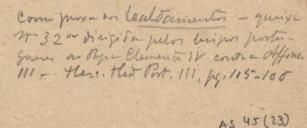 Como prova dos lealdamentos – queixa
nº 32ª dirigida pelos bispos portu-
gueses ao Papa Clemente IV contra Affonso
III – Herc. Hist. Port. III, pg. 105-106
AS 45 (23)